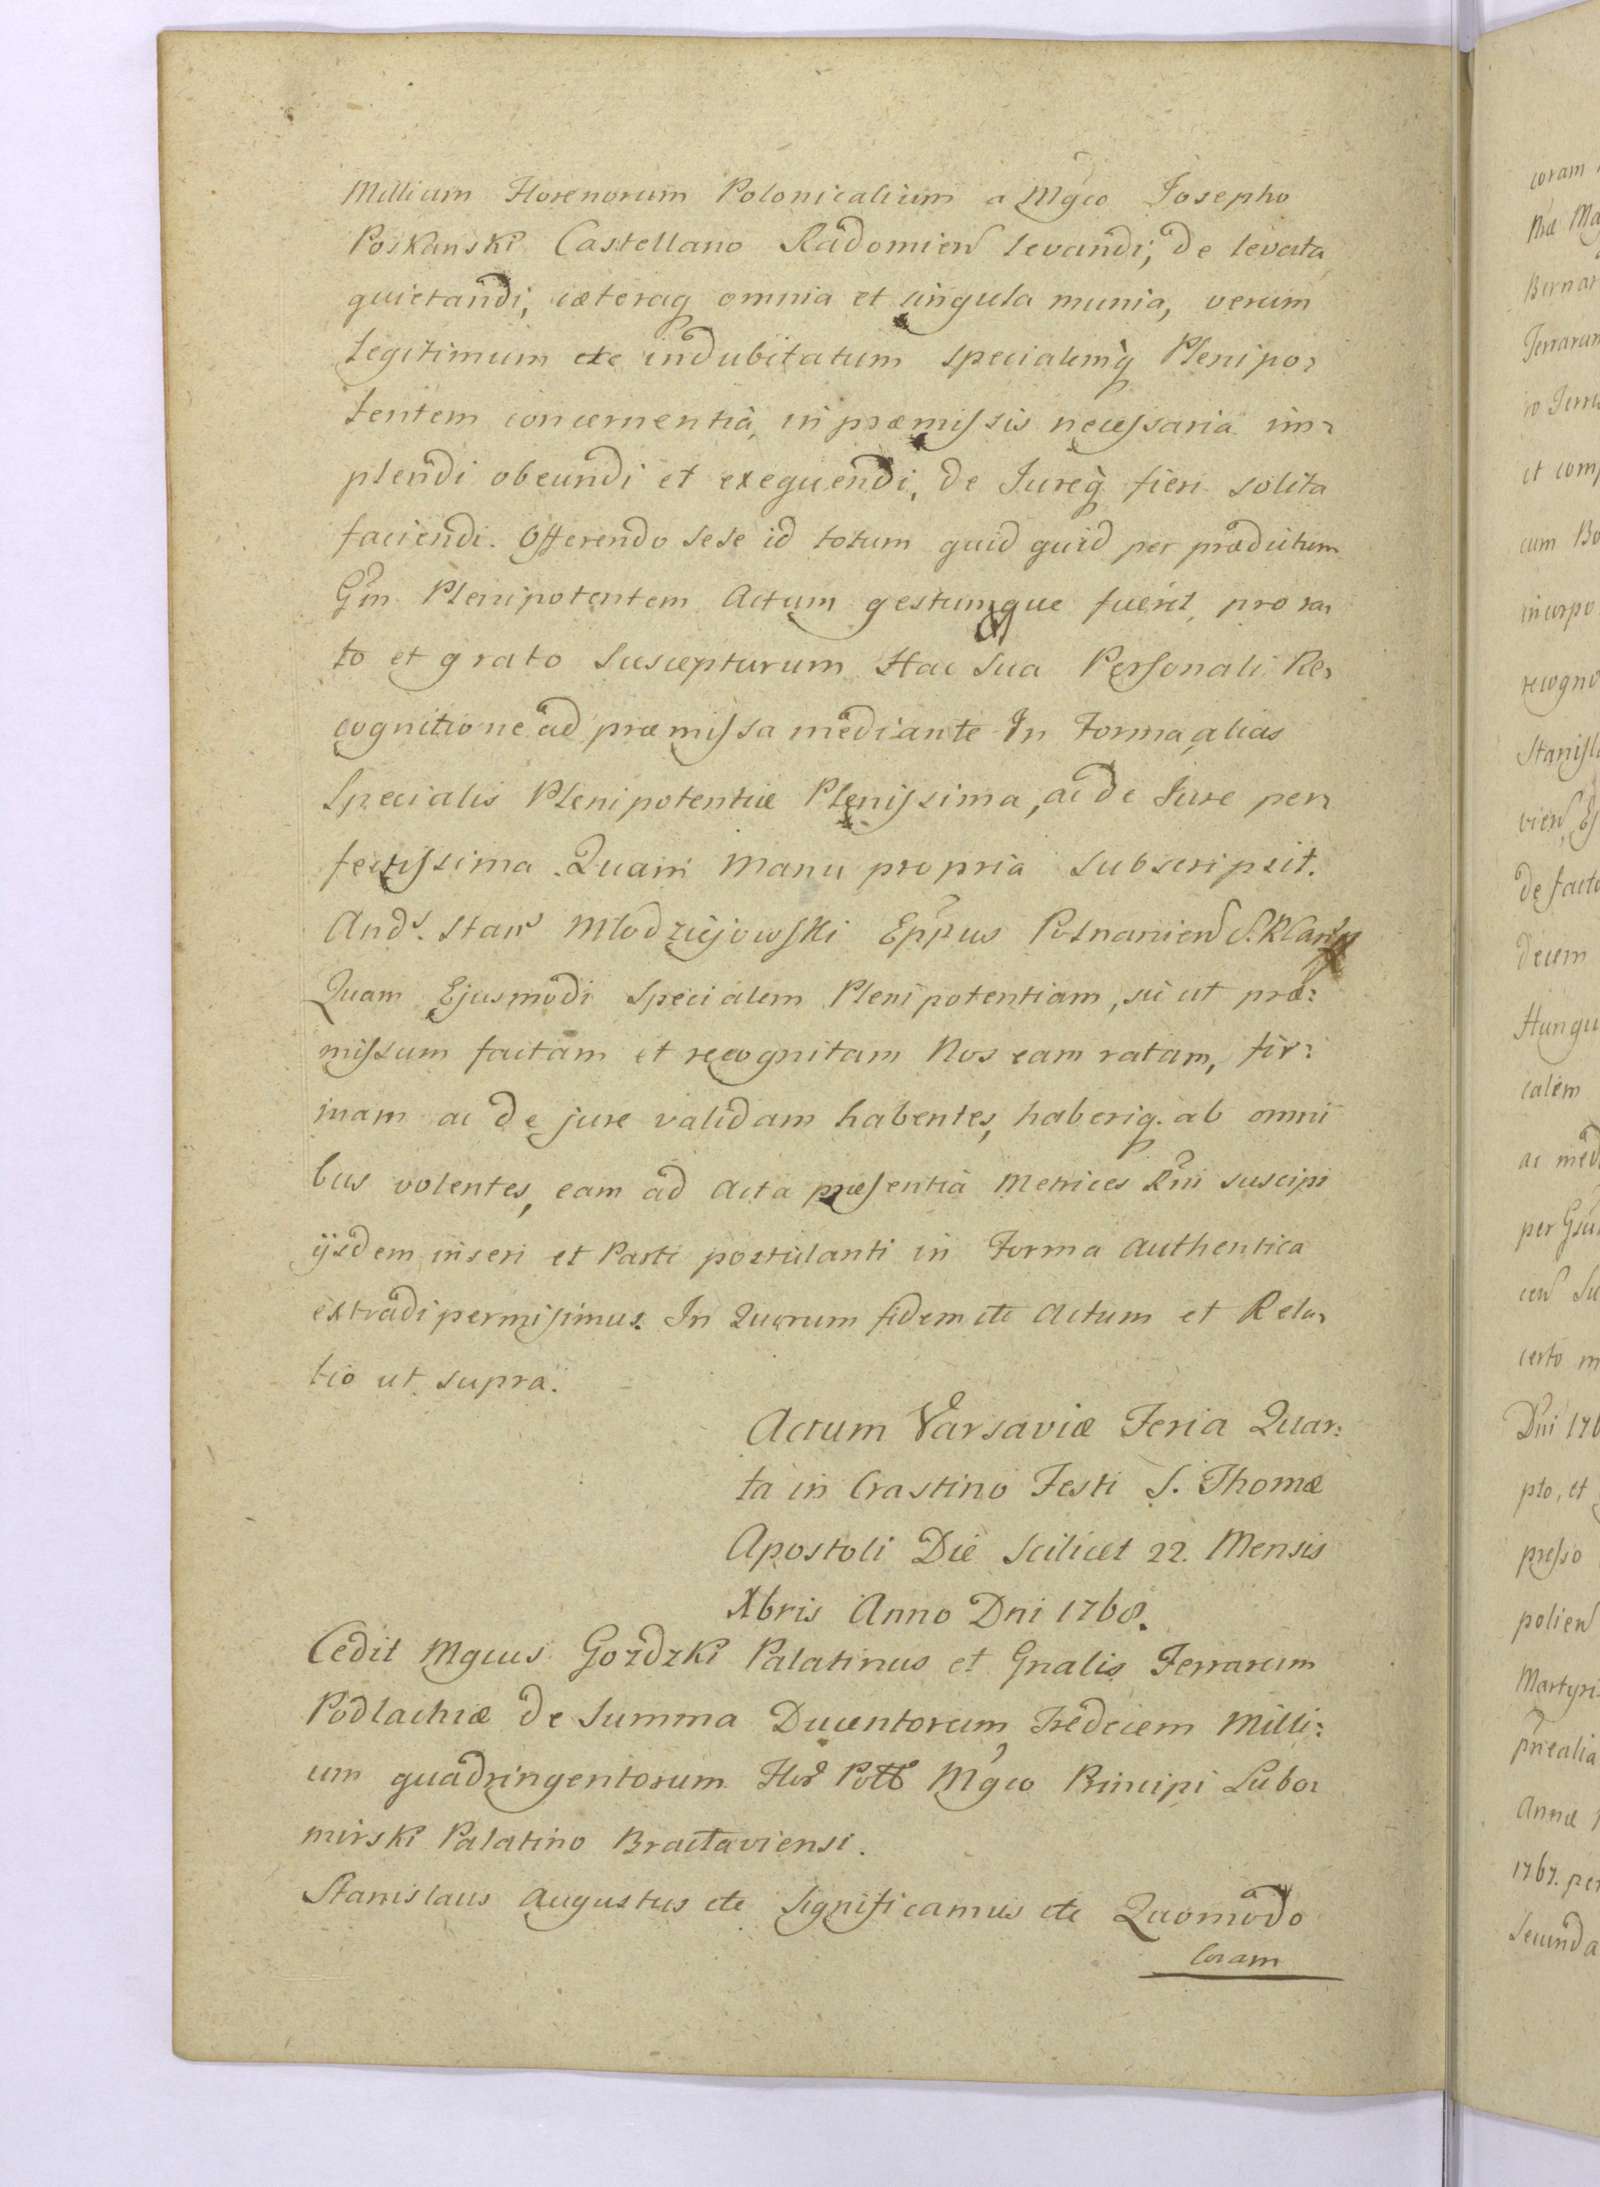 Millium Florenorum Polonicalium a Mgco Josepho
Poskanski Castellano Radomien levandi, de levata
quietandi, cæteraq omnia et singula munia, verum
Legitimum ete indubitatum specialemq Plenipo
tentem concernentia, in præmissis necessaria im
plendi obeundi et exequendi, de Jureq fieri solita
faciendi. Offerendo sese id totum quid quid per prædictum
Gsm Plenipotentem Actum gestumque fuerit, pro ra
to et grato suscepturum Hac sua Personali Re
cognitione ad præmissa mediante In Forma, alias
Specialis Plenipotentiæ Plenissima, ac de Jure per
fectissima. Quam manu propria subscripsit.
And. Stan Mlodziejowski Eppus Posnanien S.R.
Quam Ejusmodi specialem Plenipotentiam, sic ut præ:
missum factam et recognitam Nos eam ratam, fir:
mam ac de jure validam habentes, haberiq. ab omni
bus volentes, eam ad Acta præsentia Metrices Rni suscipi
ijsdem inseri et Parti postulanti in Forma authentica
extradi permisimus. In Quorum fidem etc Actum et Rela
tio ut supra.
Actum Varsaviæ Feria Quar:
ta in Crastino Festi S. Thomæ
Apostoli Die Scilicet 22. Mensis
Xbris Anno Dni 1768.
Cedit Mgcus Gozdzki Palatinus et Gnalis Terrarum
Podlachiæ de Summa Ducentorum Tredeciem Milli:
um quadringentorum Flor Poll Mgco Principi Lubo
mirski Palatino Braclaviensi.
Stanislaus Augustus etc significamus etc Quomodo
Coram
coram
Ma
Bernar
Terrarum
et comp
cum Bo
incorpo
recogno
Stanisl
de facto
decem
Hungu
calem
ac med
certo m
Dni 176
pto, et
presso
polien
Martyri
Annæ
1767. per
Secunda